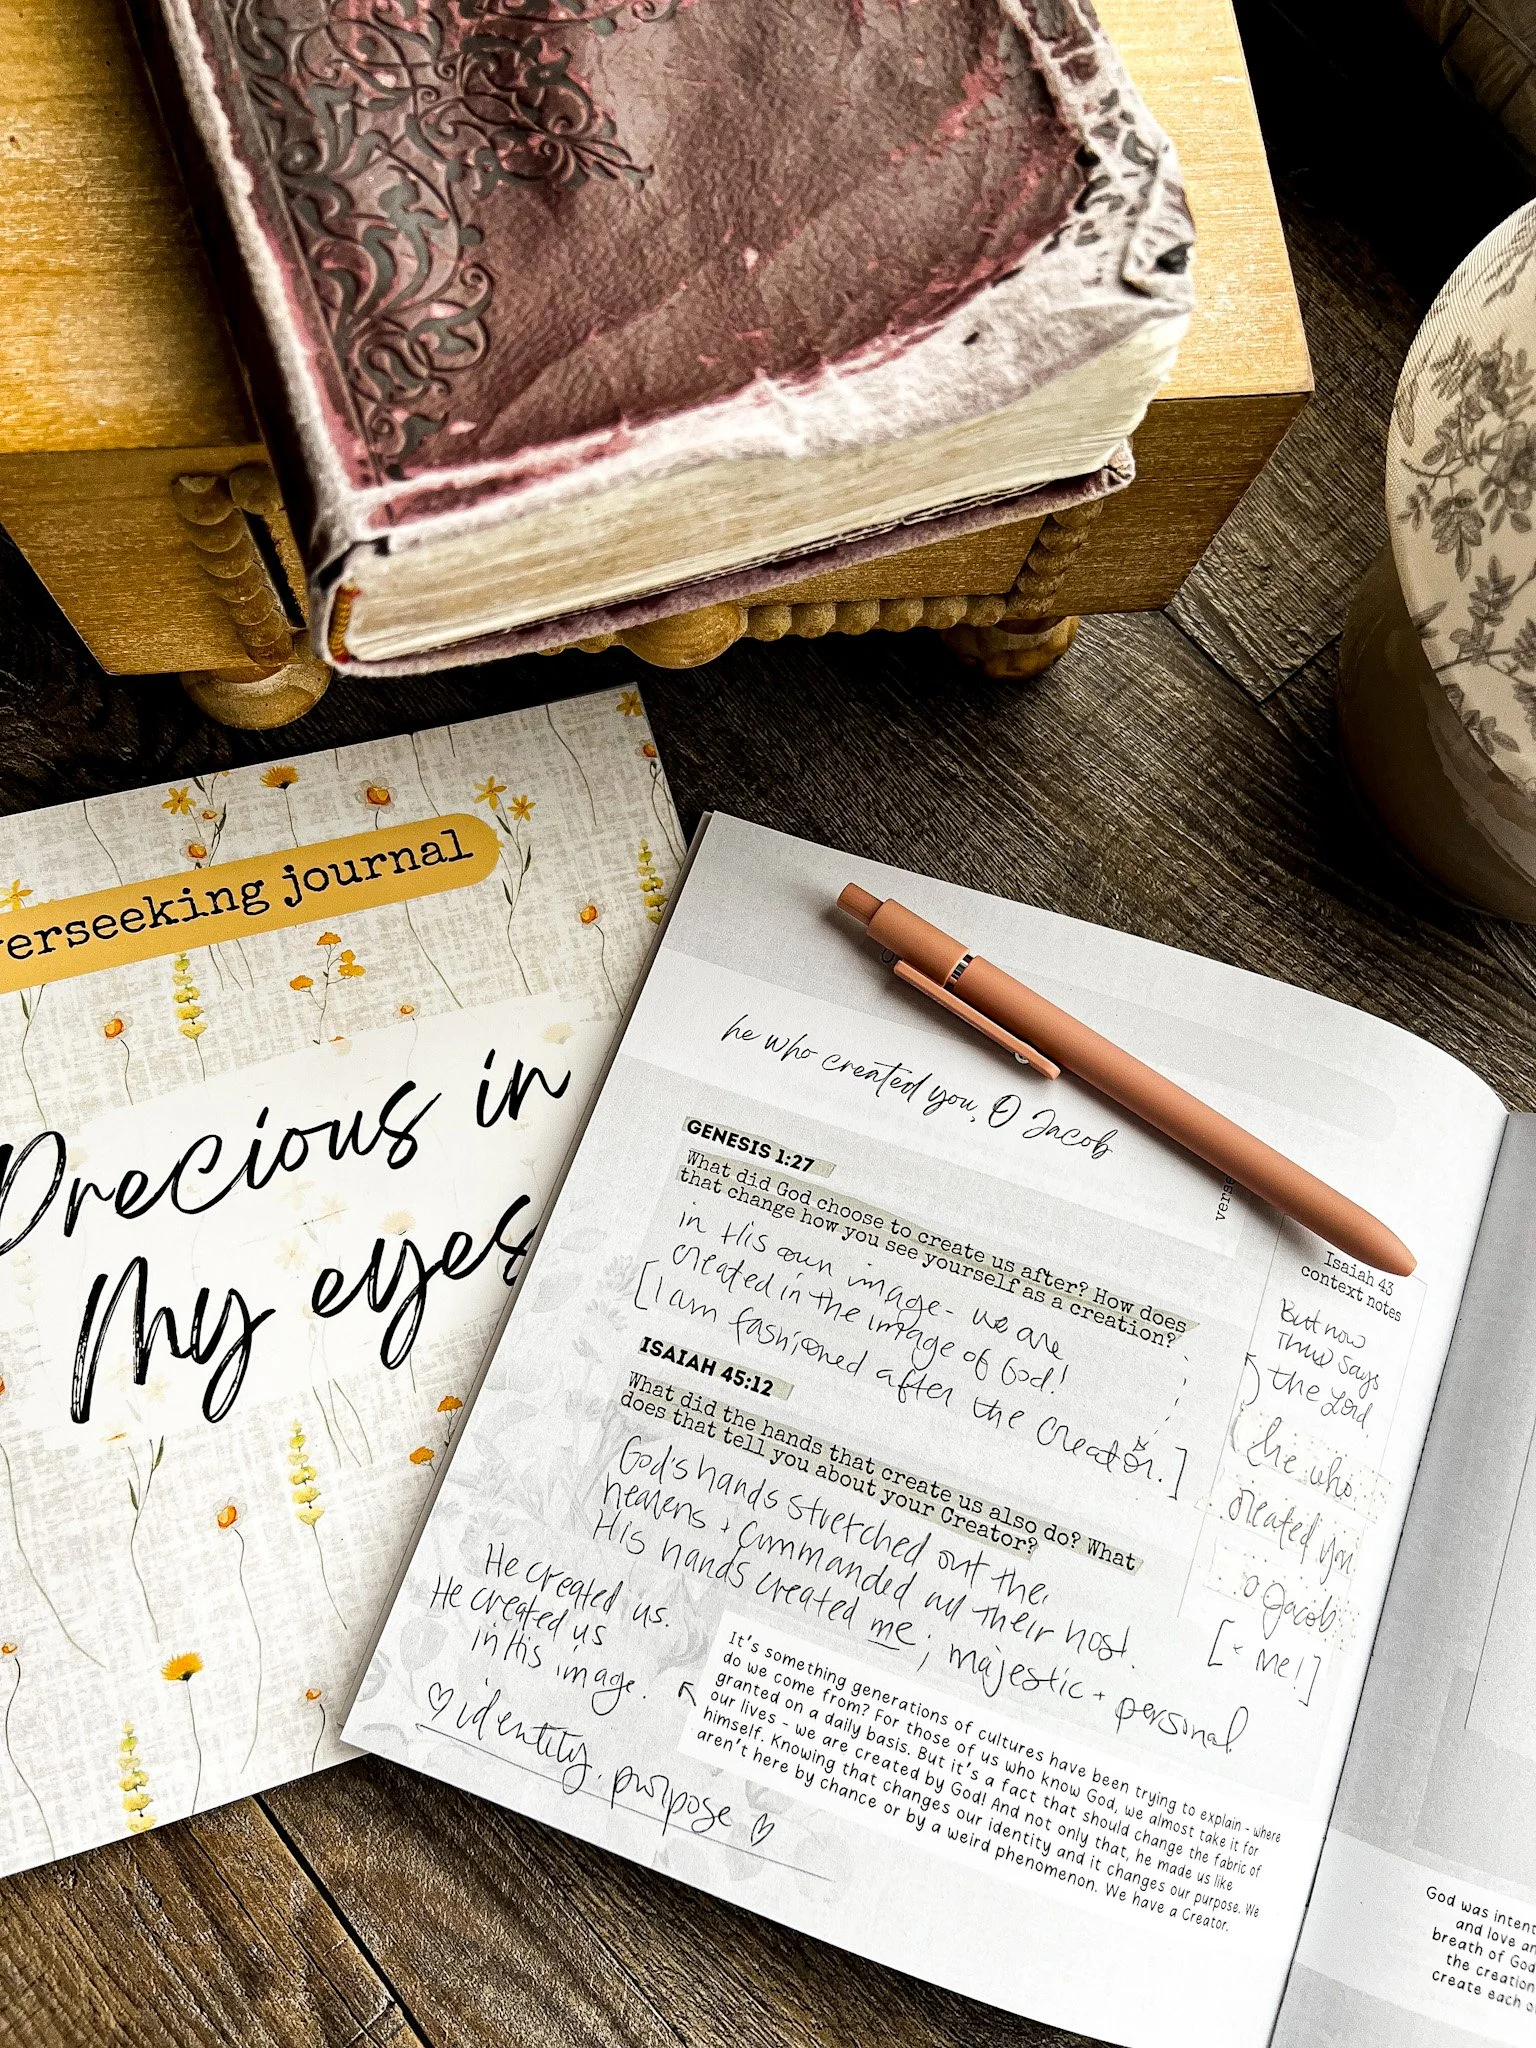 verseeking journal
Precious in
My eyes
he who created you, O Jacob
GENESIS 1:27
What did God choose to create us after? How does
that change how you see yourself as a creation?
in His own image - we are
created in the image of God!
[I am fashioned after the creator.]
ISAIAH 45:12
What did the hands that create us also do? What
does that tell you about your Creator?
God's hands stretched out the
heavens + commanded all their host.
His hands created me; majestic + personal
He created us.
He created us
in His image.
identity. purpose
It's something generations of cultures have been trying to explain - where
do we come from? For those of us who know God, we almost take it for
granted on a daily basis. But it's a fact that should change the fabric of
our lives - we are created by God! And not only that, he made us like
himself. Knowing that changes our identity and it changes our purpose. We
aren't here by chance or by a weird phenomenon. We have a Creator.
verse
Isaiah 43
context notes
But now
Thus says
the Lord,
he who
created you
o Jacob
[+ me!]
God was intent
and love an
breath of God
the creation
create each o